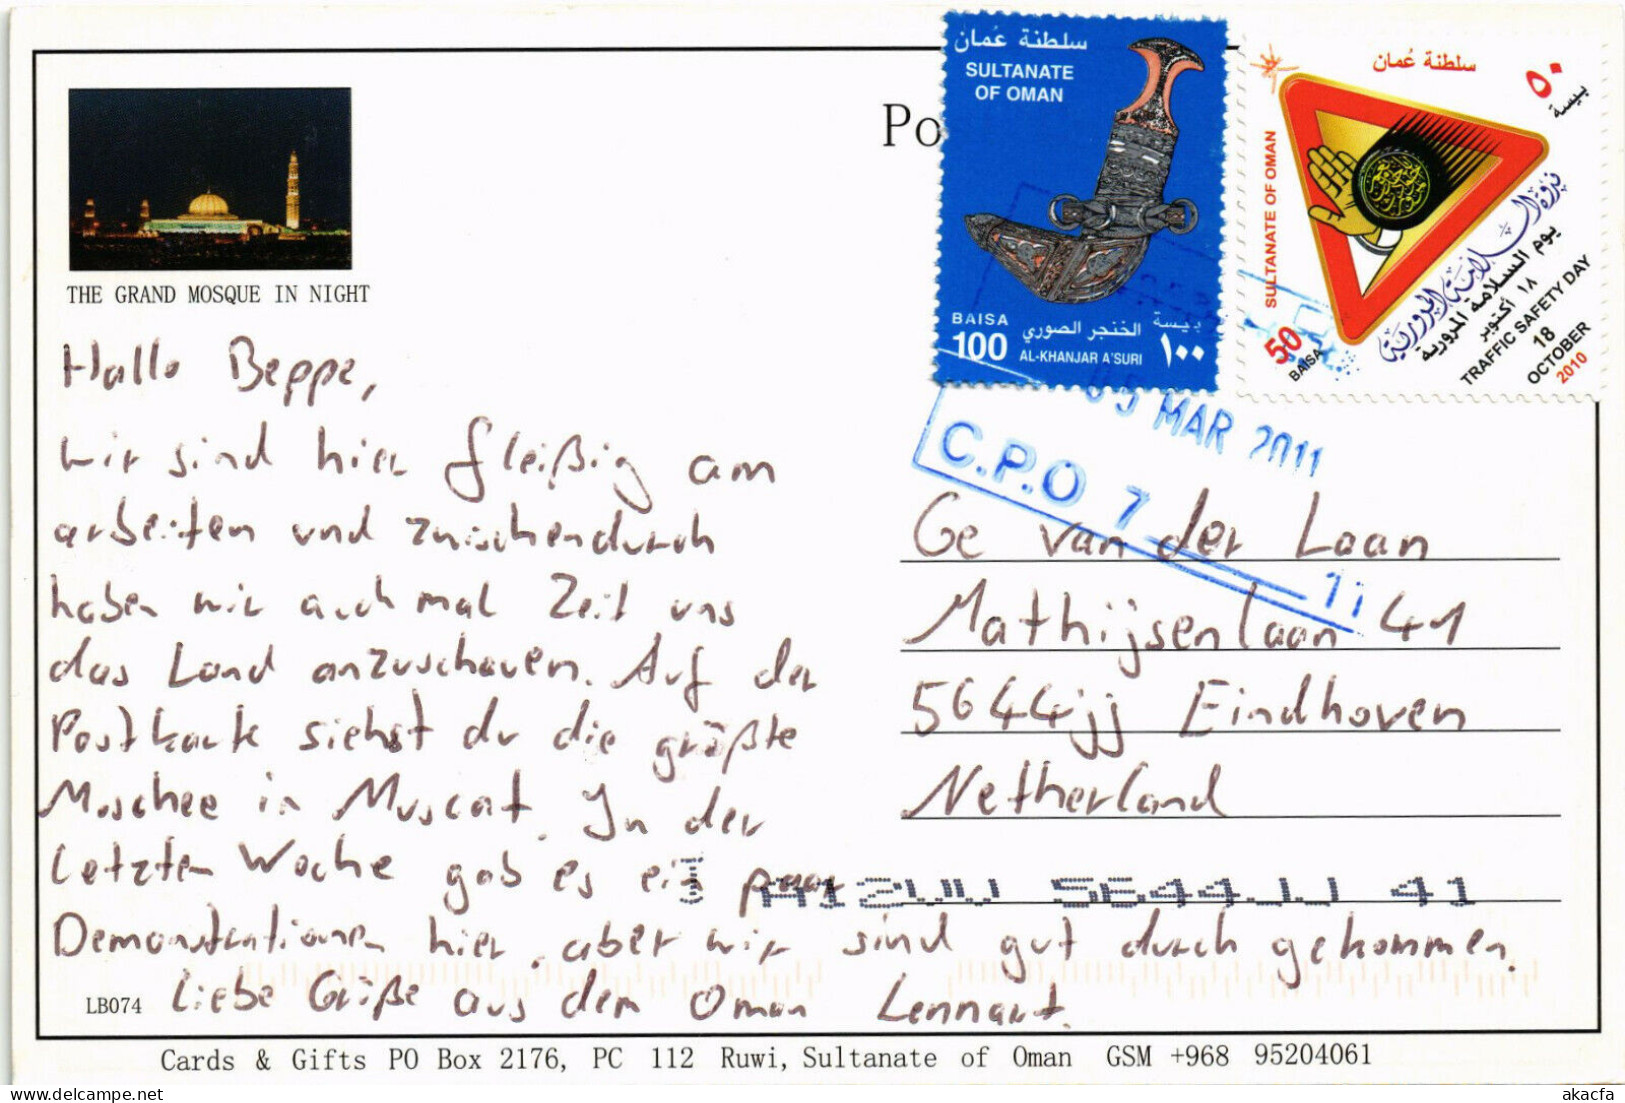 سلطنة عُمان
SULTANATE
OF OMAN
BAISA
100
الخنجر الصوري
بيسة
١٠٠
AL-KHANJAR A'SURI
سلطنة عُمان
٥٠
بيسة
SULTANATE OF OMAN
50
BAISA
يوم السلامة المرورية
١٨ أكتوبر
TRAFFIC SAFETY DAY
18
OCTOBER
2010
Po
THE GRAND MOSQUE IN NIGHT
05 MAR 2011
C.P.O 7
11
Hallo Beppe,
wir sind hier fleißig am
arbeiten und zwischendurch
haben wir auch mal Zeit uns
das Land anzuschauen. Auf der
Postkarte siehst du die größte
Moschee in Muscat. In der
letzten Woche gab es ein paar
Demonstrationen hier, aber wir sind gut durch gekommen.
Liebe Grüße aus dem Oman Lennart.
Ge van der Laan
Mathijsenlaan 41
5644jj Eindhoven
Netherland
A12UW 5644JJ 41
LB074
Cards & Gifts PO Box 2176, PC 112 Ruwi, Sultanate of Oman GSM +968 95204061
akacfa